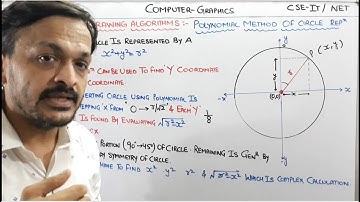 COMPUTER-GRAPHICS
CSE-IT/NET
DRAWING ALGORITHMS:- POLYNOMIAL METHOD OF CIRCLE REPⁿ
CIRCLE IS REPRESENTED BY A
x²+y²=r²
CAN BE USED TO FIND Y COORDINATE
COORDINATE
CIRCLE USING POLYNOMIAL IS
X FROM 0 → r/√2 & EACH Y
IS FOUND BY EVALUATING √r²-x²
1/8
PORTION (90°→45°) OF CIRCLE. REMAINING IS GENᴰ BY
BY SYMMETRY OF CIRCLE.
TO x² y² r² & √r²-x² WHICH IS COMPLEX CALCULATION
P (x,y)
y
r
x
-x
(0,0)
-y